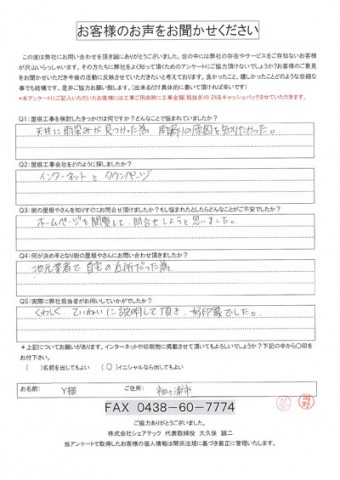 お客様のお声をお聞かせください
この度は弊社にお問い合わせを頂き誠にありがとうございました。世の中には弊社の存在やサービスをご存知ないお客様
が沢山いらっしゃいます。その方たちに弊社をよく知って頂くためのアンケートにご協力頂けないでしょうか?お客様のご意見
をお聞かせいただき今後の活動に反映させていただきたいと考えております。良かったこと、嬉しかったことどのような些細な
事でも結構です。是非ご協力お願い致します。(出来るだけ具体的に書いて頂ければ幸いです)
*本アンケートにご記入いただいたお客様には工事ご用命時に工事金額(税抜き)の2%をキャッシュバックさせていただきます。
Q1:屋根工事を検討したきっかけは何ですか?どんなことで悩まれていましたか?
天井に雨染みが見つかった為、雨漏りの原因を知りたかった。
Q2:屋根工事会社をどのように探しましたか?
インターネットとタウンページ
Q3:街の屋根やさんを知りすぐにお問合せ頂けましたか?もし悩まれたとしたらどんなことがご不安でしたか?
ホームページを閲覧して、問合せしようと思いました。
Q4:何が決め手となり街の屋根やさんにお問い合わせ頂きましたか?
地元業者で自宅の近所だった為
Q5:実際に弊社担当者がお伺いしていかがでしたか?
くわしく、ていねいに説明して頂き、好印象でした。
*上記についてお願いがあります。インターネットや印刷物に掲載させて頂いてもよろしいでしょうか?下記の中から〇印を
お付下さい。
( )名前を出してもよい (〇)イニシャルなら出してもよい
お名前: Y様 ご住所: 袖ヶ浦市
FAX 0438-60-7774
ご協力ありがとうございました。
株式会社シェアテック 代表取締役 大久保 誠二
当アンケートで取得したお客様の個人情報は関係法規に基づき厳正に管理いたします。